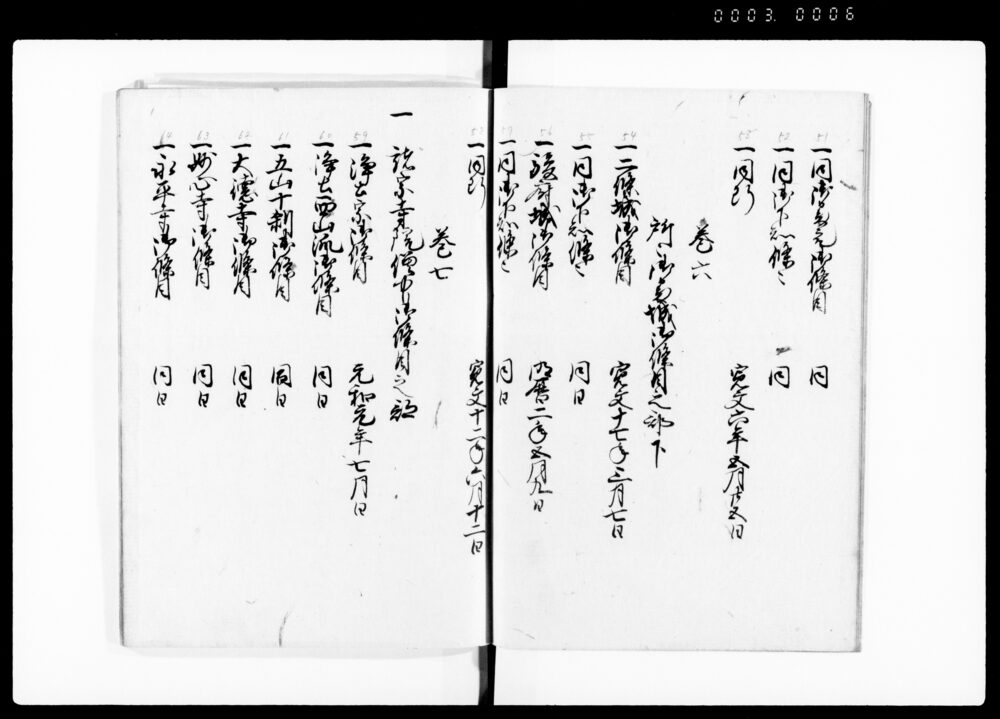 0003. 0006
51 一同御番衆御條目 同
52 一同御下知條々 同
53 一同断 寛文六年五月廿五日
巻六
所々御番城御條目之部下
54 一二條城御條目 寛文十七年三月七日
55 一同御下知條々 同日
56 一駿府城御條目 明暦二年五月九日
57 一同御下知條々 同日
58 一同断 寛文十二年六月十二日
巻七
一 諸宗寺院僧中御條目之部
59 一浄土宗御條目 元和元年七月日
60 一浄土西山流御條目 同日
61 一五山十刹御條目 同日
62 一大徳寺御條目 同日
63 一妙心寺御條目 同日
64 一永平寺御條目 同日